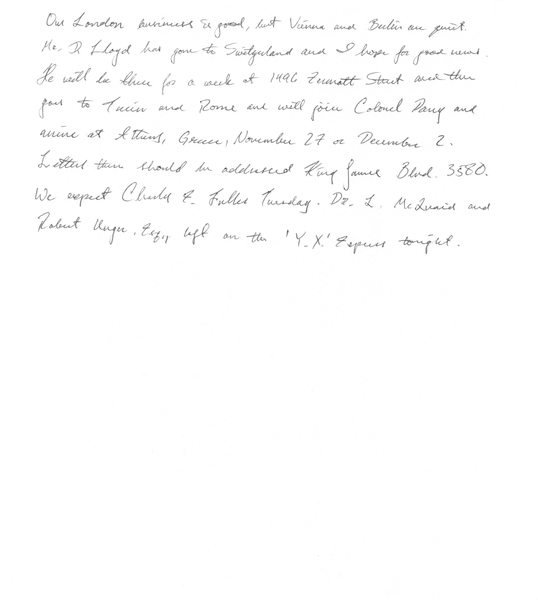 Our London business is good, but Vienna and Berlin are quiet.
Mr. D. Lloyd has gone to Switzerland and I hope for good news.
He will be there for a week at 1496 Zermatt Street and then
goes to Turin and Rome and will join Colonel Parry and
arrive at Athens, Greece, November 27 or December 2.
Letters there should be addressed King James Blvd. 3580.
We expect Charles E. Fuller Tuesday. Dr. L. McQuaid and
Robert Unger, Esq., left on the 'Y.X.' Express tonight.